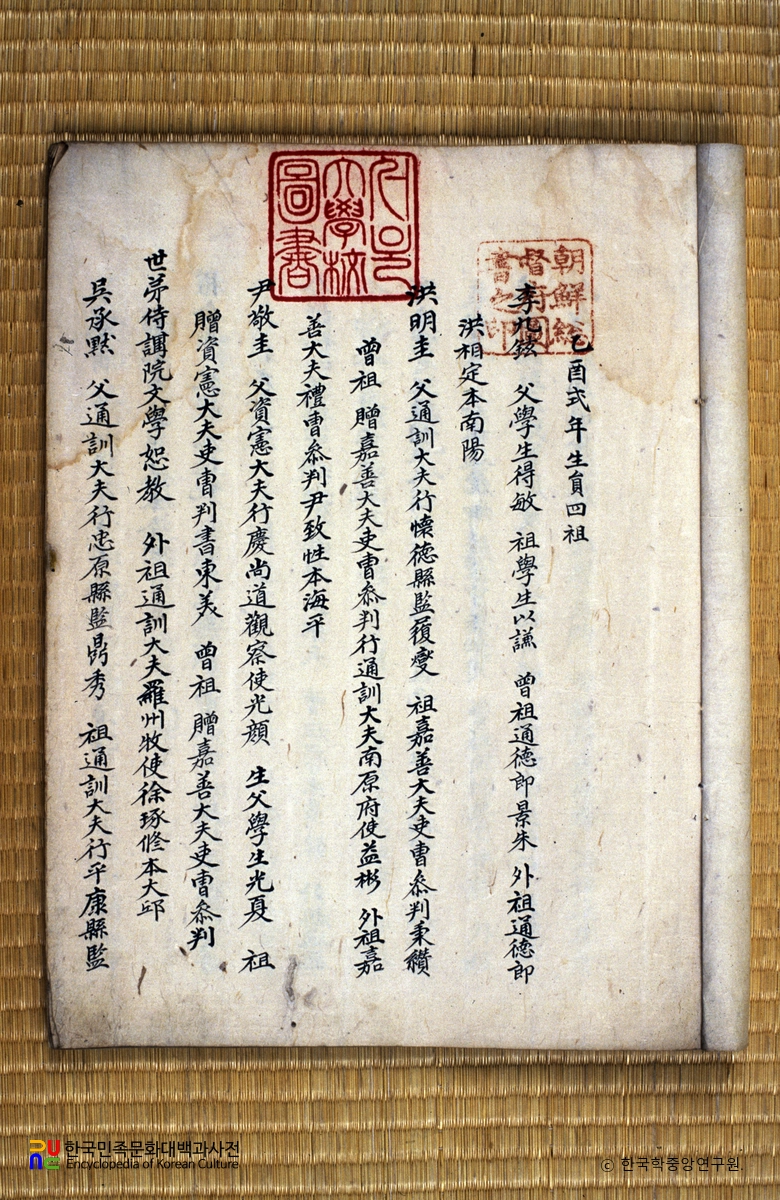 乙酉式年生員四祖
李九鉉 父學生得敏 祖學生以謙 曾祖通德郎景朱 外祖通德郎
洪相定本南陽
洪明圭 父通訓大夫行懷德縣監履燮 祖嘉善大夫吏曹叅判秉纘
曾祖 贈嘉善大夫吏曹叅判行通訓大夫南原府使益彬 外祖嘉
善大夫禮曹叅判尹致性本海平
尹敬圭 父資憲大夫行慶尚道觀察使光顔 生父學生光夏 祖
贈資憲大夫吏曹判書東美 曾祖 贈嘉善大夫吏曹叅判
世苐侍講院文學恕教 外祖通訓大夫羅州牧使徐琢修本大邱
吳承默 父通訓大夫行忠原縣監鼎秀 祖通訓大夫行平康縣監
朝鮮總
督府圖
書之印
서울
大學校
圖書
한국민족문화대백과사전
Encyclopedia of Korean Culture
© 한국학중앙연구원.